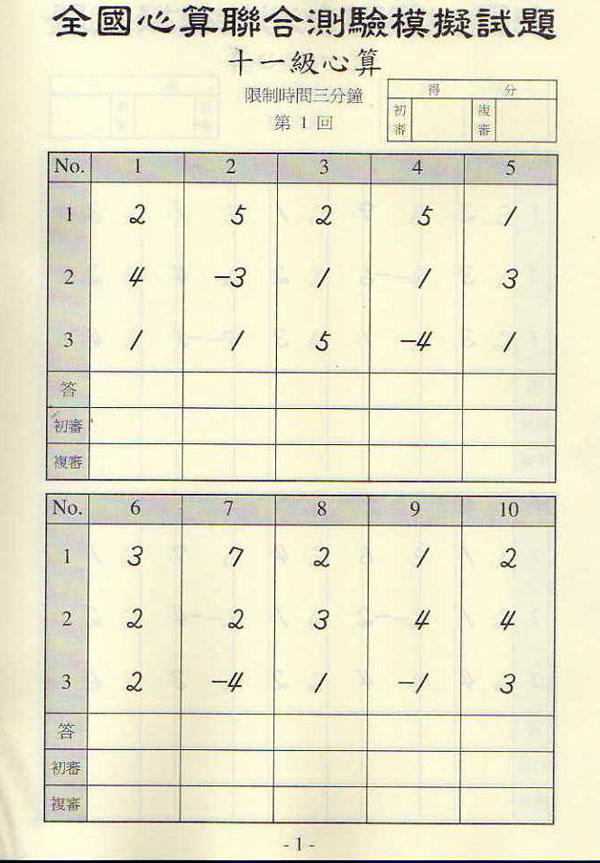 全國心算聯合測驗模擬試題
十一級心算
限制時間三分鐘
第 1 回
得 分
初審 複審
No. 1 2 3 4 5
1 2 5 2 5 1
2 4 -3 1 1 3
3 1 1 5 -4 1
答
初審
複審
No. 6 7 8 9 10
1 3 7 2 1 2
2 2 2 3 4 4
3 2 -4 1 -1 3
答
初審
複審
- 1 -